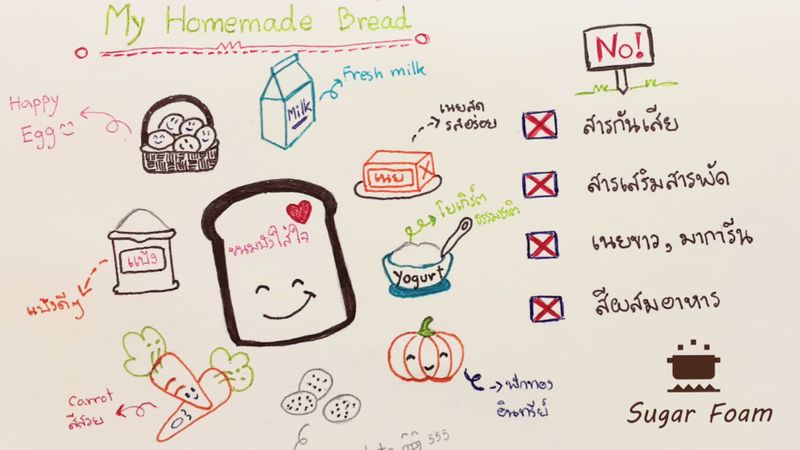 My Homemade Bread
Happy
Egg
Milk
Fresh milk
เนยสด
รสอร่อย
เนย
ขนมปังใส่ใจ
โยเกิร์ต
ธรรมชาติ
Yogurt
แป้ง
แป้งดีๆ
Carrot
สีสวย
ฟักทอง
อินทรีย์
555
No!
สารกันเสีย
สารเสริมสารพัด
เนยขาว, มาการีน
สีผสมอาหาร
Sugar Foam